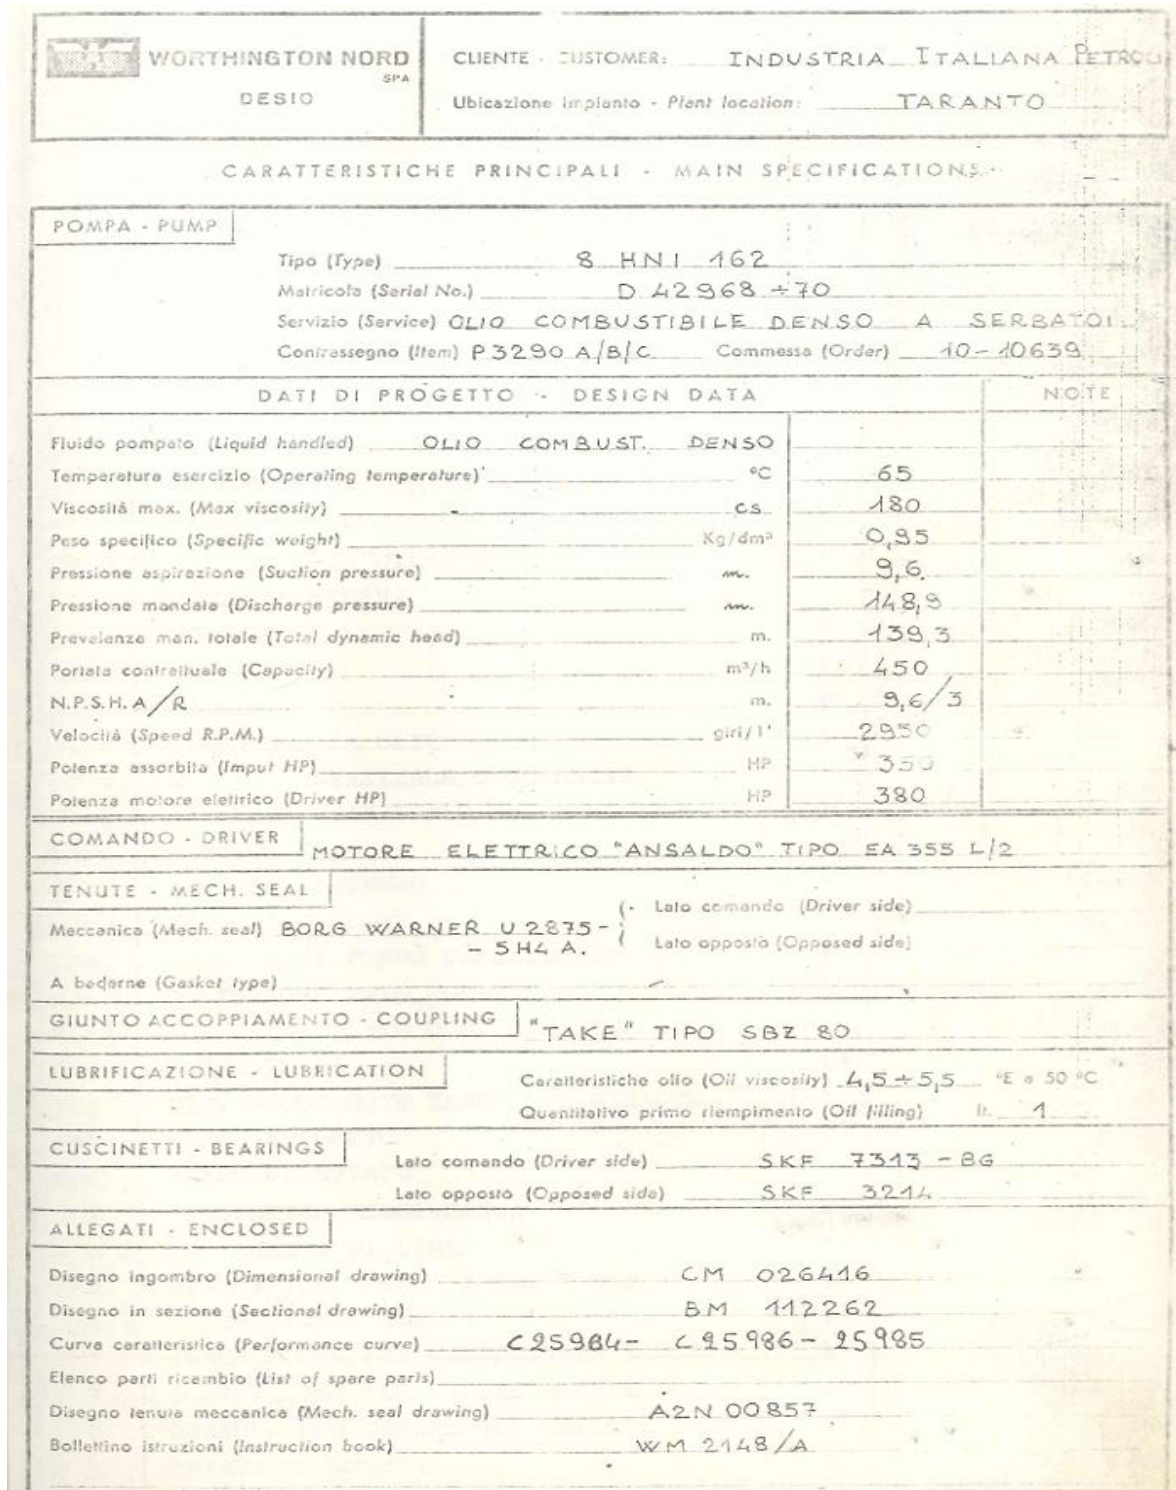 WORTHINGTON NORD
SPA
DESIO
CLIENTE - CUSTOMER: INDUSTRIA ITALIANA PETROLI
Ubicazione impianto - Plant location: TARANTO
CARATTERISTICHE PRINCIPALI - MAIN SPECIFICATIONS
POMPA - PUMP
Tipo (Type) 8 HNI 162
Matricola (Serial No.) D 42968 ÷ 70
Servizio (Service) OLIO COMBUSTIBILE DENSO A SERBATOI
Contrassegno (Item) P3290 A/B/C Commessa (Order) 10-10639
DATI DI PROGETTO - DESIGN DATA NOTE
Fluido pompato (Liquid handled) OLIO COMBUST. DENSO
Temperatura esercizio (Operating temperature) °C 65
Viscosità max. (Max viscosity) cs 180
Peso specifico (Specific weight) Kg/dm³ 0,95
Pressione aspirazione (Suction pressure) m. 9,6
Pressione mandata (Discharge pressure) m. 148,9
Prevalenza man. totale (Total dynamic head) m. 139,3
Portata contrattuale (Capacity) m³/h 450
N.P.S.H. A/R m. 9,6/3
Velocità (Speed R.P.M.) giri/1' 2950
Potenza assorbita (Imput HP) HP 350
Potenza motore elettrico (Driver HP) HP 380
COMANDO - DRIVER MOTORE ELETTRICO "ANSALDO" TIPO EA 355 L/2
TENUTE - MECH. SEAL
Lato comando (Driver side)
Meccanica (Mech. seal) BORG WARNER U 2875-
- 5H4 A.
Lato opposto (Opposed side)
A baderne (Gasket type) -
GIUNTO ACCOPPIAMENTO - COUPLING "TAKE" TIPO SBZ 80
LUBRIFICAZIONE - LUBRICATION
Caratteristiche olio (Oil viscosity) 4,5 ÷ 5,5 °E a 50 °C
Quantitativo primo riempimento (Oil filling) lt. 1
CUSCINETTI - BEARINGS
Lato comando (Driver side) SKF 7313 - BG
Lato opposto (Opposed side) SKF 3214
ALLEGATI - ENCLOSED
Disegno ingombro (Dimensional drawing) CM 026416
Disegno in sezione (Sectional drawing) BM 112262
Curva caratteristica (Performance curve) C25984 - C25986 - 25985
Elenco parti ricambio (List of spare parts)
Disegno tenuta meccanica (Mech. seal drawing) A2N 00857
Bollettino istruzioni (Instruction book) WM 2148/A